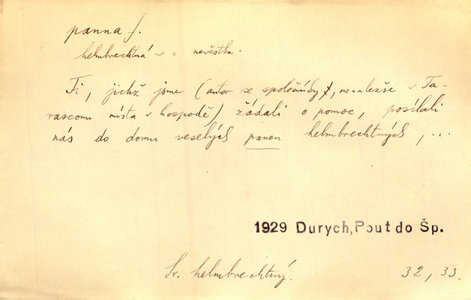 panna f.
helmbrechtná ~ = nevěstka.
Ti, jichž jsme (autor se společníky, nenalezše v Ta-
rasconu místa v hospodě) žádali o pomoc, posílali
nás do domu veselých panen helmbrechtných, ...
1929 Durych, Pout do Šp.
Sv. helmbrechtný. 32, 33.